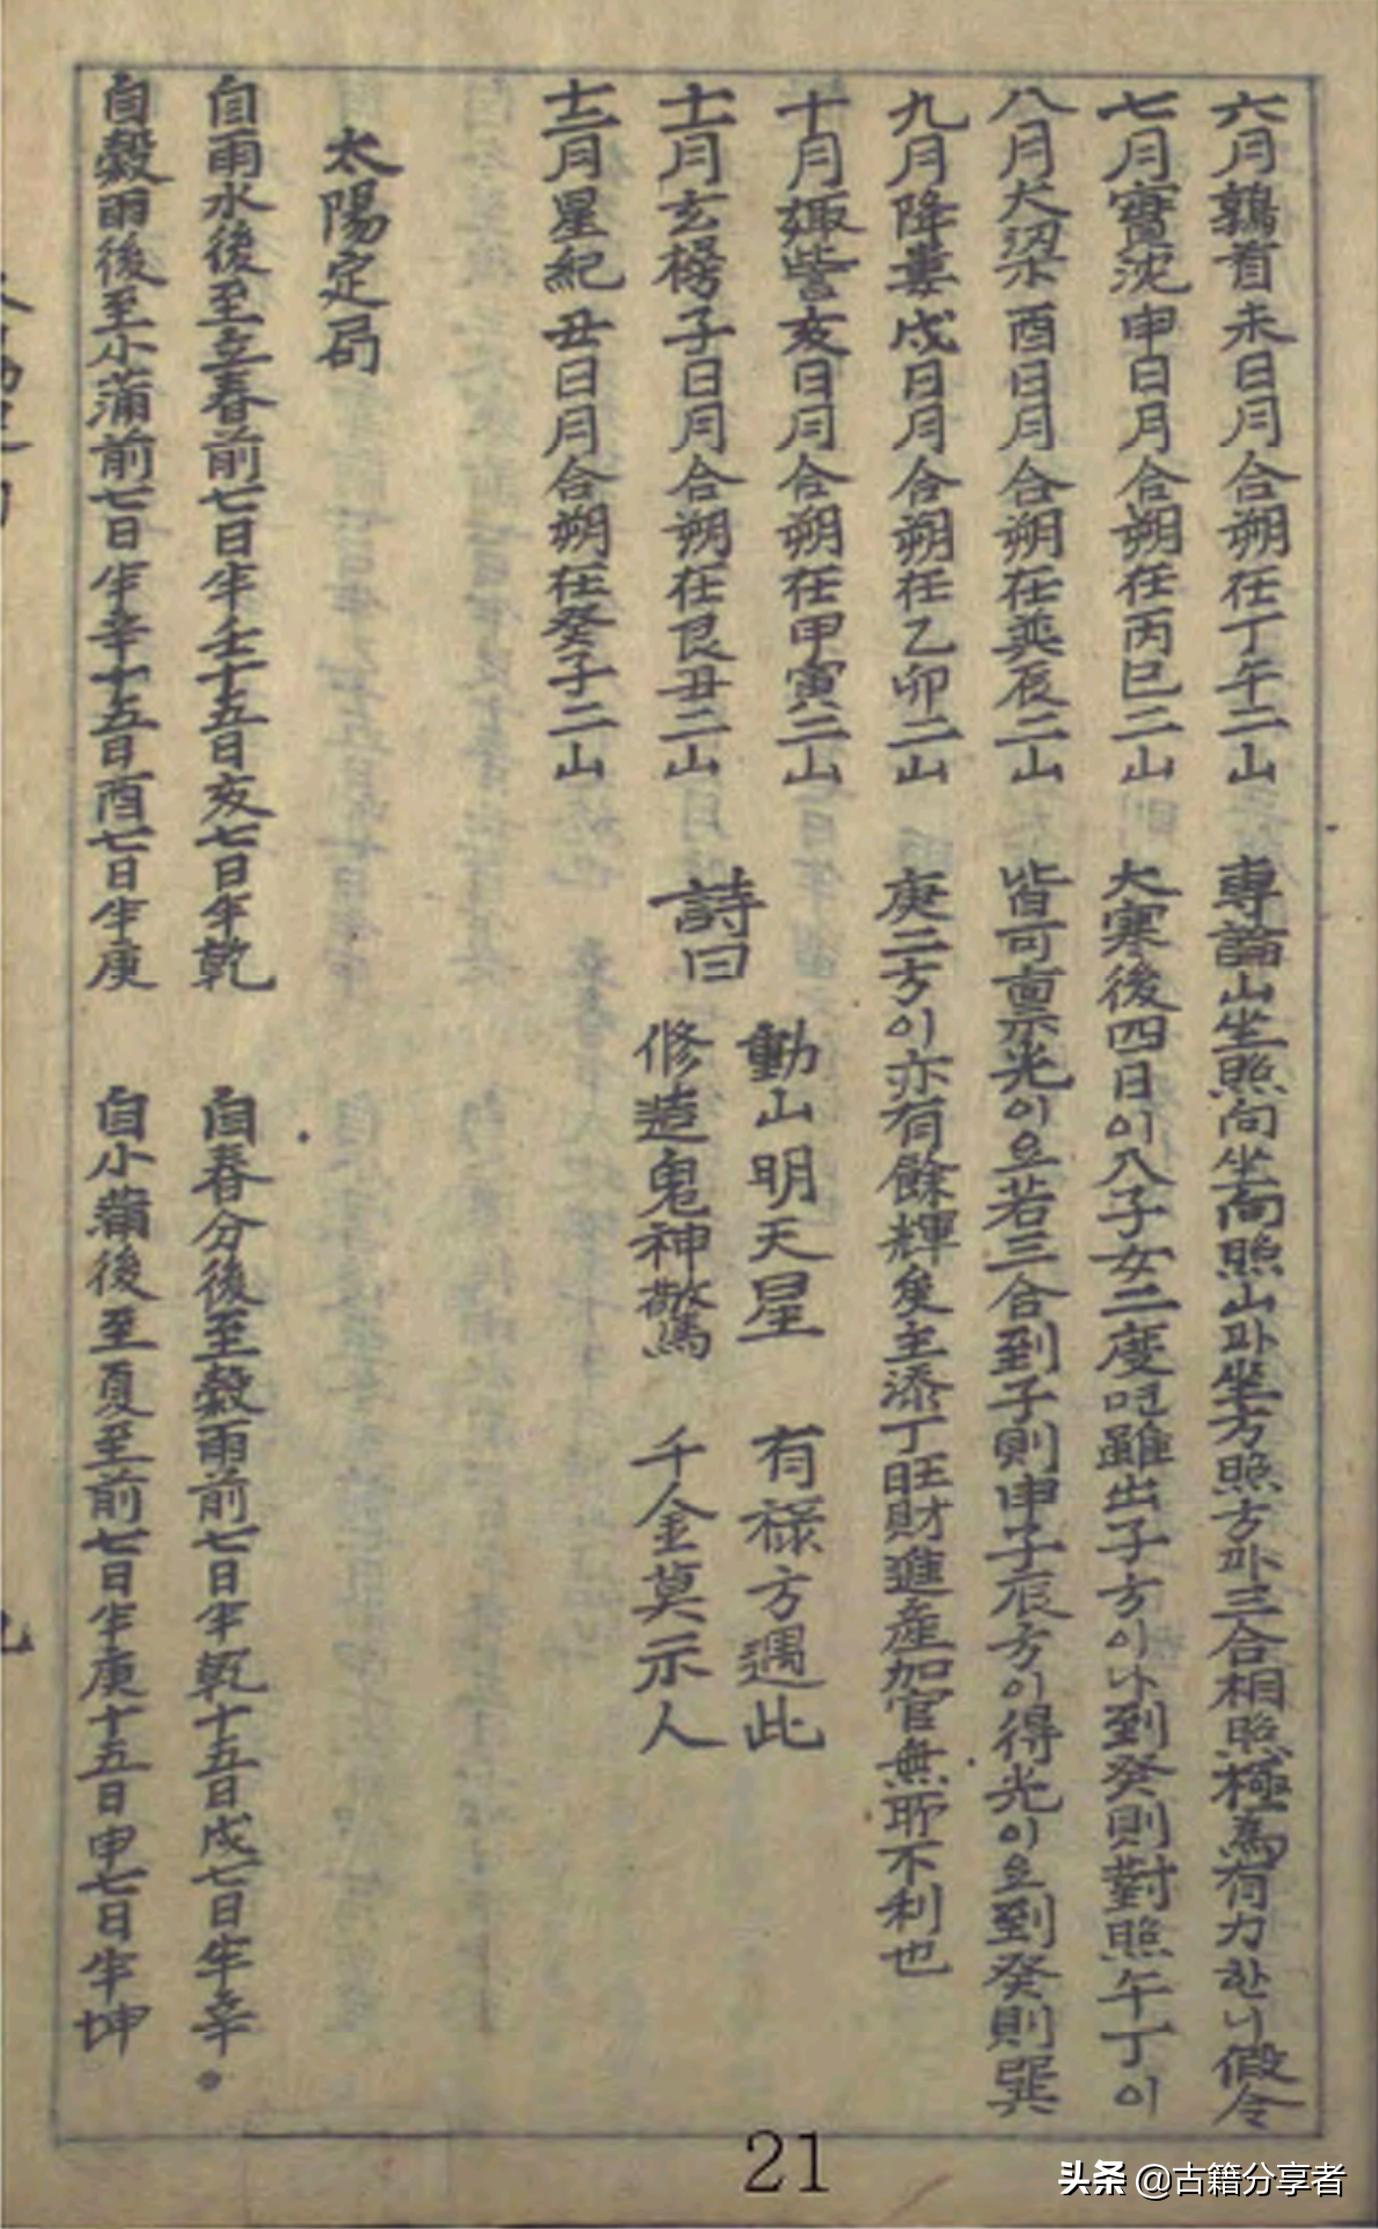 六月鶉首未日月合朔在丁午二山
七月實沈申日月合朔在丙巳二山
八月大梁酉日月合朔在巽辰二山
九月降婁戌日月合朔在乙卯二山
十月娵訾亥日月合朔在甲寅二山
十一月玄枵子日月合朔在艮丑二山
十二月星紀丑日月合朔在癸子二山
專論山坐照向坐向照山과坐方照方과三合相照極爲有力하니假令
大寒後四日이八子女二度면雖出子方이나到癸則對照午丁이
皆可稟光이오若三合到子則申子辰方이得光이오到癸則巽
庚二方이亦有餘輝矣主添丁旺財進産加官無所不利也
詩曰
動山明天星 有祿方遇此
修造鬼神驚 千金莫示人
太陽定局
自雨水後至立春前七日半壬十五日亥七日半乾
自春分後至穀雨前七日半乾十五日戌七日半辛
自穀雨後至小滿前七日半辛十五日酉七日半庚
自小滿後至夏至前七日半庚十五日申七日半坤
21
头条 @古籍分享者